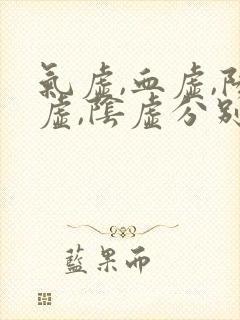 氣虛,血虛,陽
虛,陰虛分別
藍果而